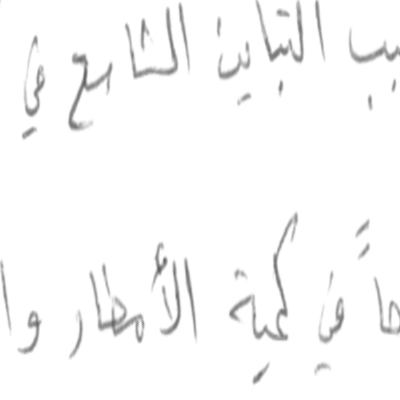 التباين الشاسع في
في كمية الأمطار وا